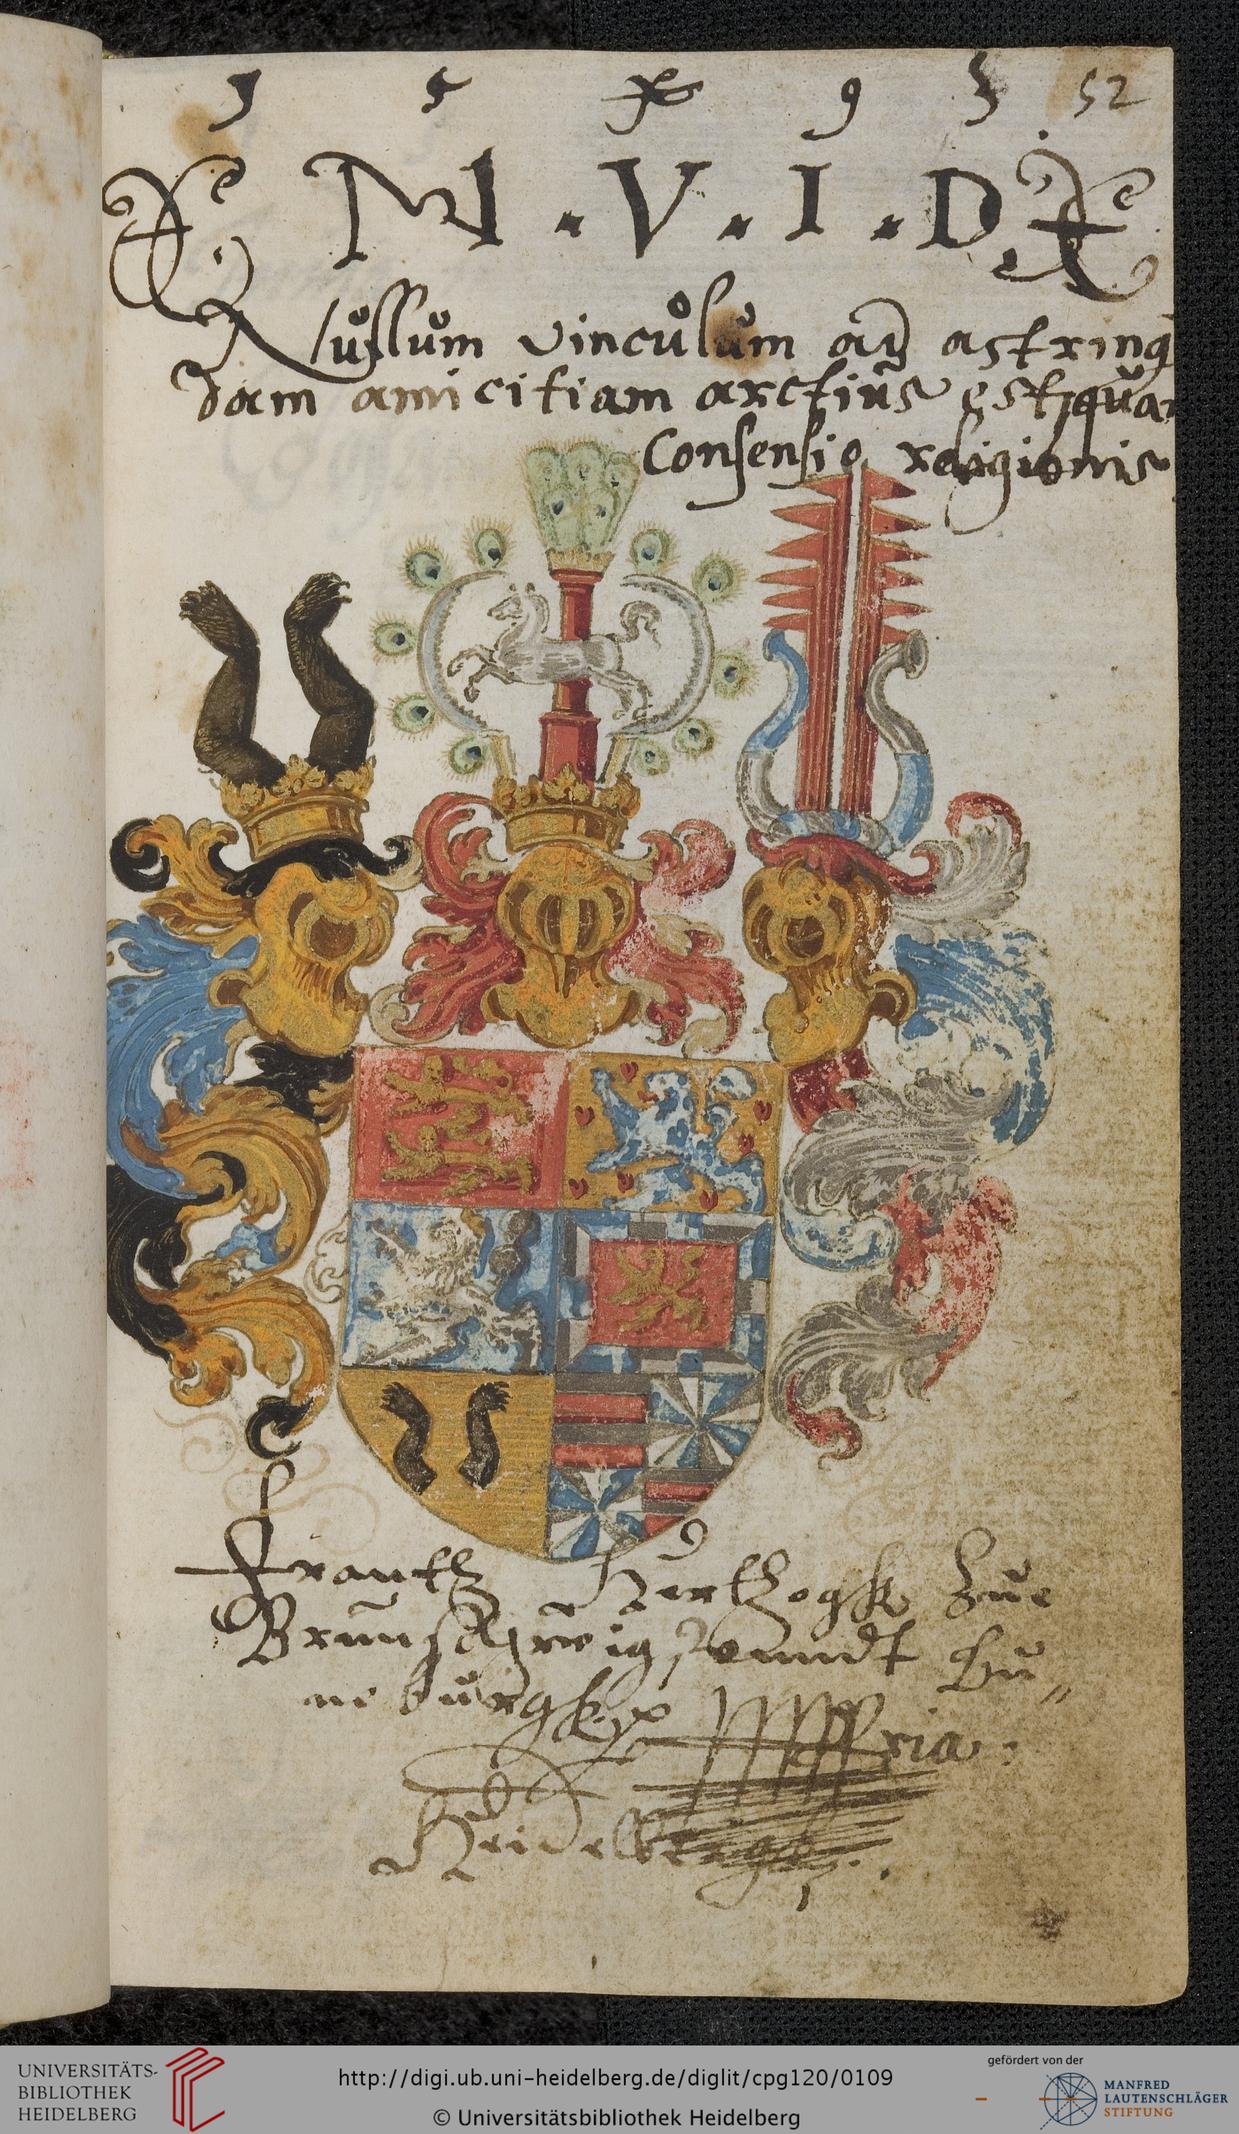 1 5 9 3 52
N . V . I . D
Nullum vinculum ad astringē
dam amicitiam arctius est quā
Consensio religionis
Frantz Hertzogk Zue
Brunschweig vnndt Lu„
neburgk
Heidelbergæ
UNIVERSITÄTS-
BIBLIOTHEK
HEIDELBERG
http://digi.ub.uni-heidelberg.de/diglit/cpg120/0109
© Universitätsbibliothek Heidelberg
gefördert von der
MANFRED
LAUTENSCHLÄGER
STIFTUNG